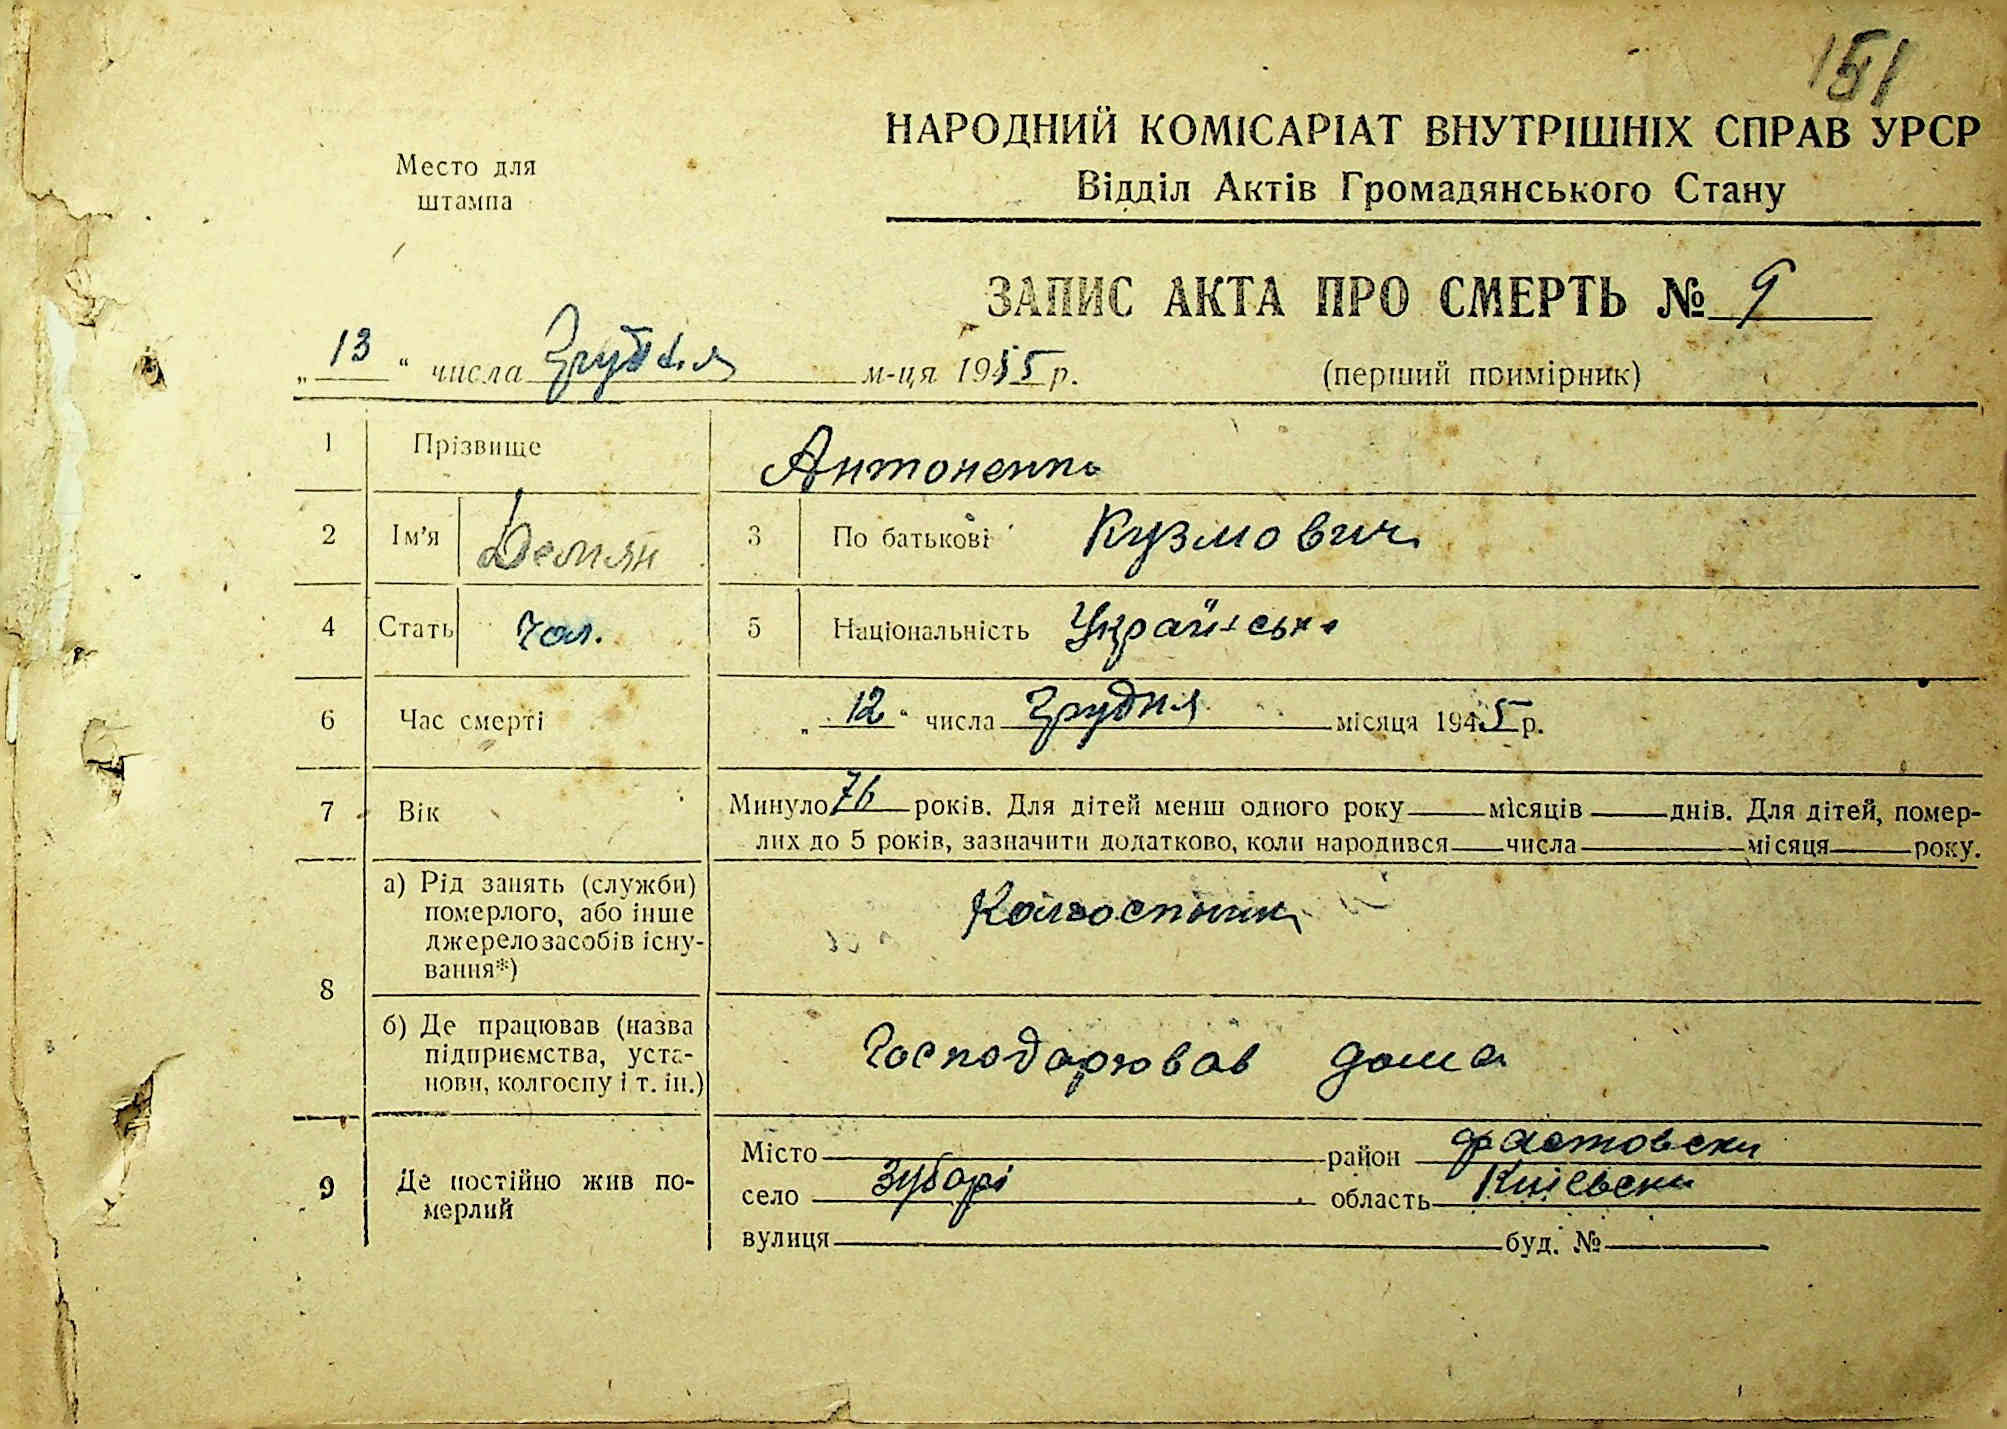 151
НАРОДНИЙ КОМІСАРІАТ ВНУТРІШНІХ СПРАВ УРСР
Место для
штампа
Відділ Актів Громадянського Стану
ЗАПИС АКТА ПРО СМЕРТЬ № 9
„13“ числа Грудня м-ця 1945 р.
(перший примірник)
1 Прізвище Антоненко
2 Ім'я Демян 3 По батькові Кузмович
4 Стать чол. 5 Національність Українська
6 Час смерті „12“ числа Грудня місяця 1945 р.
7 Вік Минуло 76 років. Для дітей менш одного року місяців днів. Для дітей, помер-
лих до 5 років, зазначити додатково, коли народився числа місяця року.
8 а) Рід занять (служби)
померлого, або інше
джерело засобів існу-
вання*)
Колгоспник
б) Де працював (назва
підприємства, уста-
нови, колгоспу і т. ін.)
Господарював дома
9 Де постійно жив по-
мерлий
Місто район Фастовски
село Зубарі область Київски
вулиця буд. №